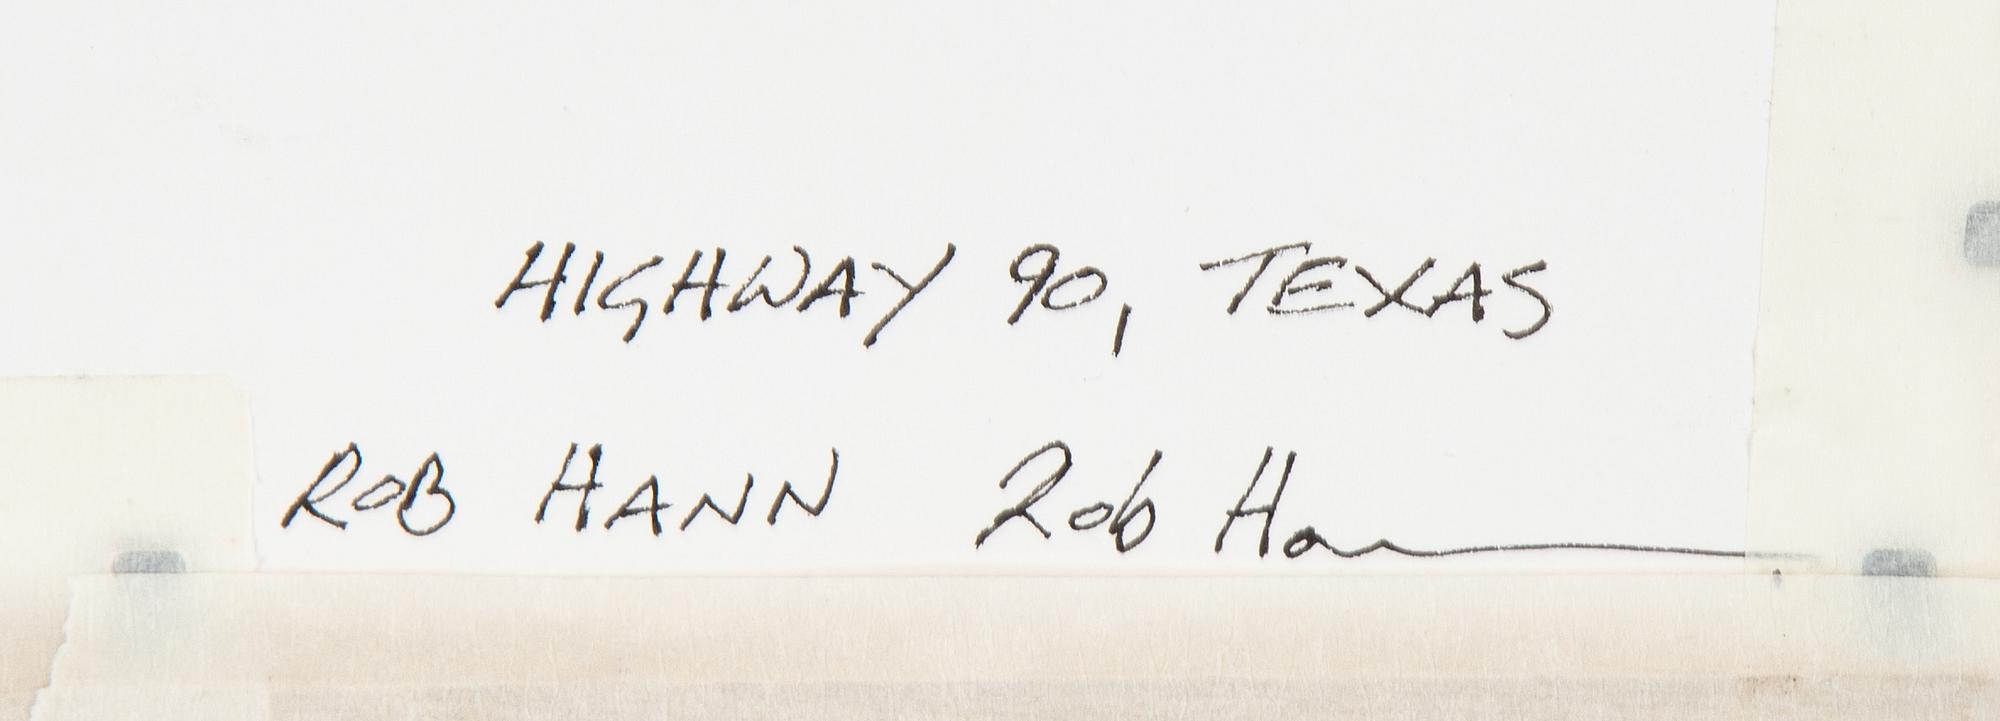 HIGHWAY 90, TEXAS
ROB HANN Rob Ha